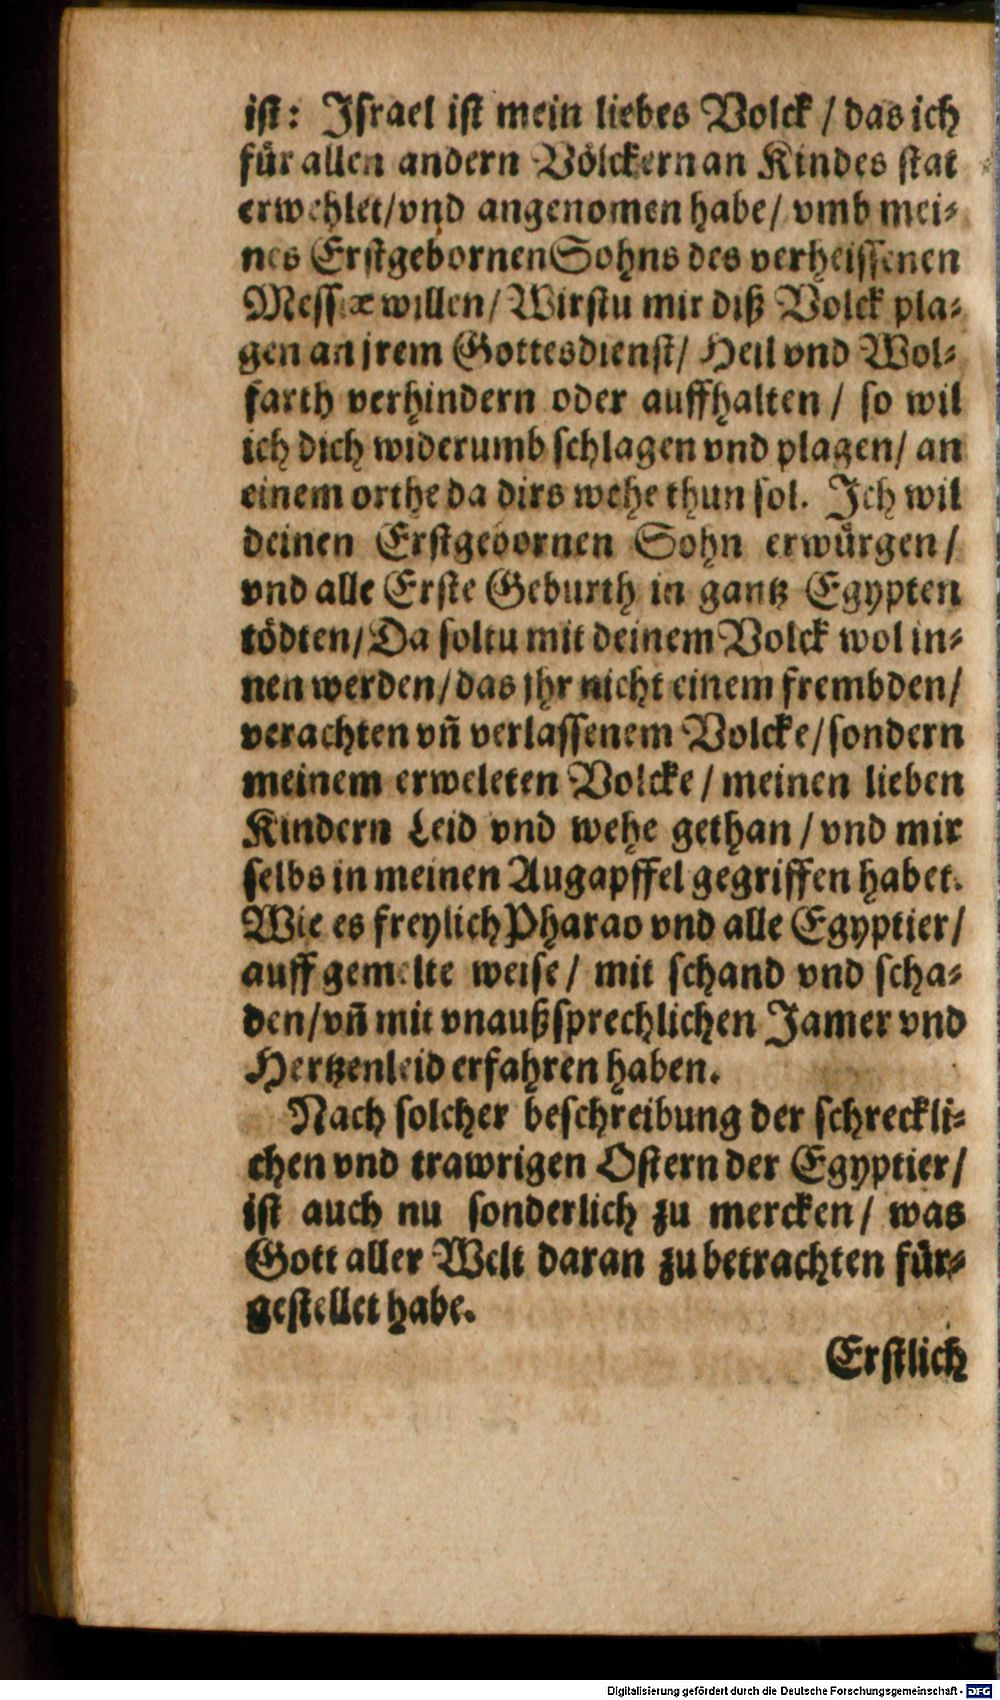 iſt: Jſrael iſt mein liebes Volck / das ich
für allen andern Völckern an Kindes ſtat
erwehlet/vnd angenomen habe/ vmb mei⸗
nes Erſtgebornen Sohns des verheiſſenen
Meſſiæ willen/ Wirſtu mir diß Volck pla⸗
gen an jrem Gottesdienſt/ Heil vnd Wol⸗
farth verhindern oder auffhalten / ſo wil
ich dich widerumb ſchlagen vnd plagen/ an
einem orthe da dirs wehe thun ſol. Jch wil
deinen Erſtgebornen Sohn erwürgen/
vnd alle Erſte Geburth in gantz Egypten
tödten/Da ſoltu mit deinem Volck wol in⸗
nen werden/das jhr nicht einem frembden/
verachten vn̄ verlaſſenem Volcke/ſondern
meinem erweleten Volcke / meinen lieben
Kindern Leid vnd wehe gethan / vnd mir
ſelbs in meinen Augapffel gegriffen habet.
Wie es freylich Pharao vnd alle Egyptier/
auff gemelte weiſe/ mit ſchand vnd ſcha⸗
den/vn̄ mit vnaußſprechlichen Jamer vnd
Hertzenleid erfahren haben.
Nach ſolcher beſchreibung der ſchreckli⸗
chen vnd trawrigen Oſtern der Egyptier/
iſt auch nu ſonderlich zu mercken/ was
Gott aller Welt daran zu betrachten für⸗
geſtellet habe.
Erſtlich
Digitalisierung gefördert durch die Deutsche Forschungsgemeinschaft - DFG